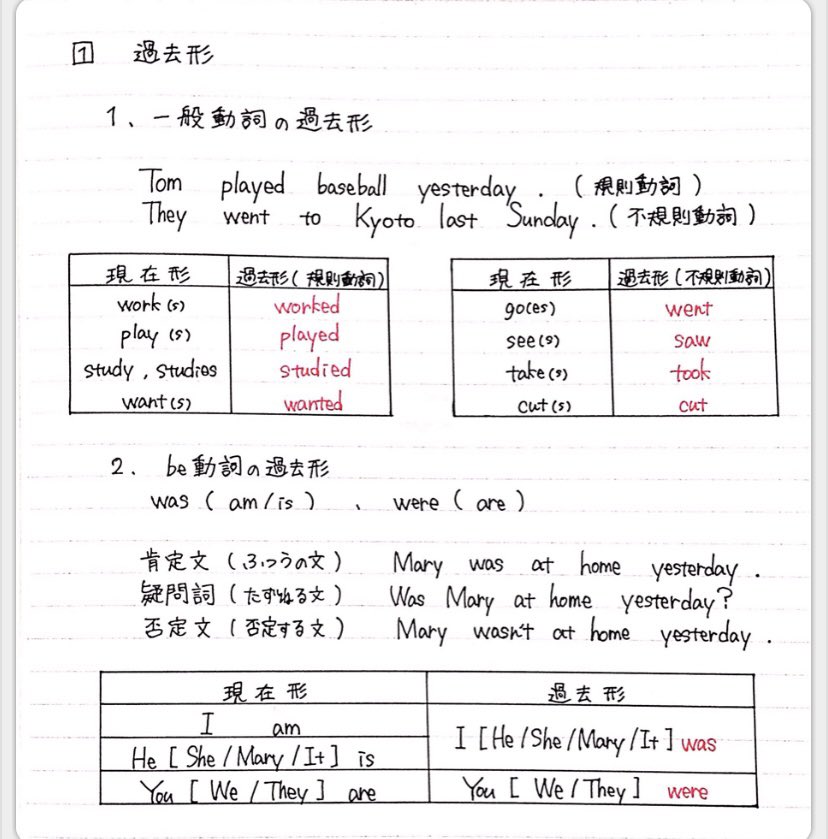 1 過去形
1、一般動詞の過去形
Tom played baseball yesterday. (規則動詞)
They went to Kyoto last Sunday. (不規則動詞)
現在形 過去形(規則動詞)
work(s) worked
play(s) played
study, studies studied
want(s) wanted
現在形 過去形(不規則動詞)
go(es) went
see(s) saw
take(s) took
cut(s) cut
2. be動詞の過去形
was (am/is)、were (are)
肯定文(ふつうの文) Mary was at home yesterday.
疑問詞(たずねる文) Was Mary at home yesterday?
否定文(否定する文) Mary wasn't at home yesterday.
現在形 過去形
I am
He [She/Mary/It] is
I [He/She/Mary/It] was
You [We/They] are You [We/They] were